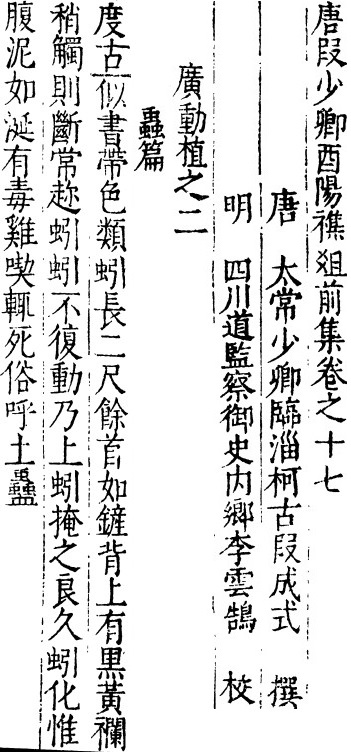 唐叚少卿酉陽襍俎前集卷之十七
唐 太常少卿臨淄柯古叚成式 撰
明 四川道監察御史内鄉李雲鵠 校
廣動植之二
蟲篇
度古似書帶色類蚓長二尺餘首如鏟背上有黒黃襴
稍觸則斷常趂蚓蚓不復動乃上蚓掩之良久蚓化惟
腹泥如涎有毒雞喫輒死俗呼土蠱